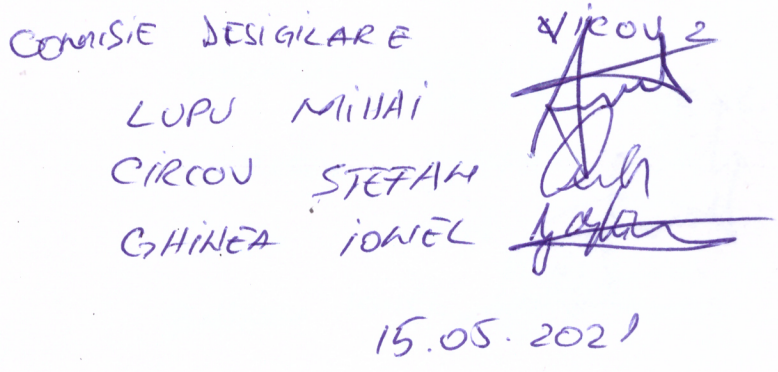 COMISIE DESIGILARE VICOV 2
LUPU MIHAI
CIRCOV STEFAN
GHINEA IONEL
15.05.2021